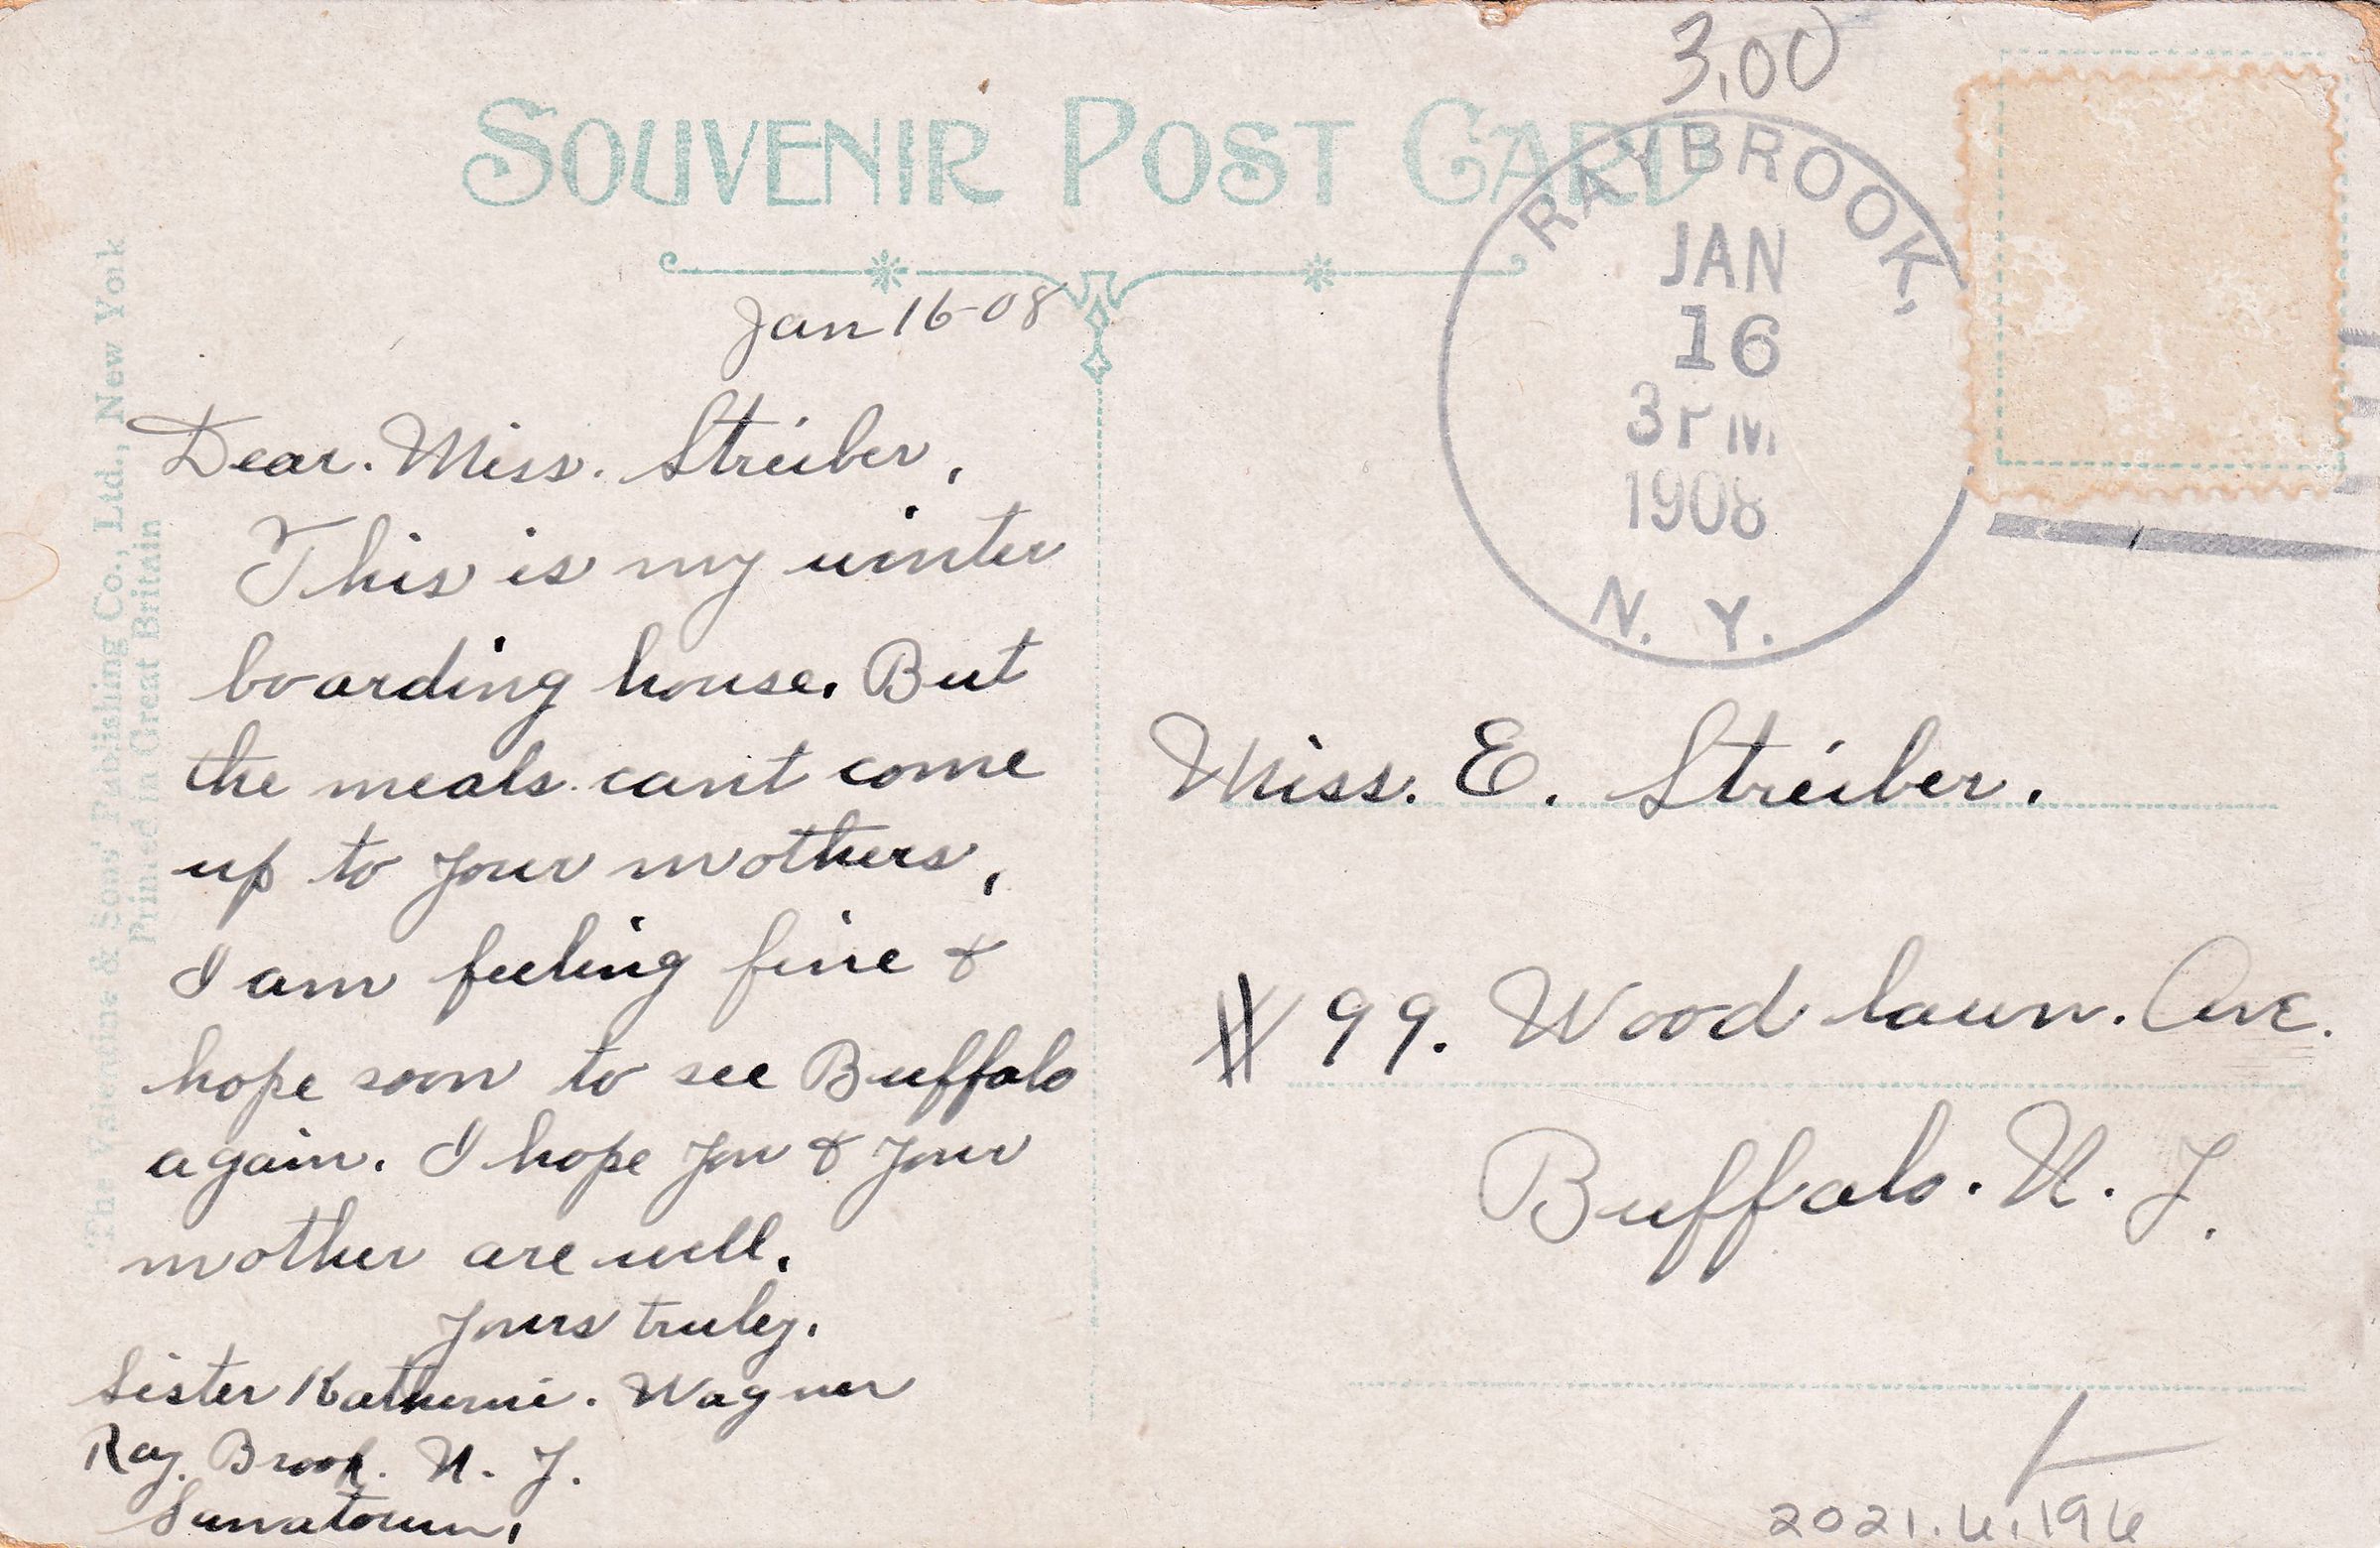 3.00
SOUVENIR POST CARD
RAYBROOK,
JAN
16
3 PM
1908
N. Y.
The Valentine & Sons' Publishing Co., Ltd., New York
Printed in Great Britain
Jan 16-08
Dear. Miss. Streiber,
This is my winter
boarding house. But
the meals can't come
up to your mothers,
I am feeling fine &
hope soon to see Buffalo
again. I hope you & your
mother are well.
Yours truley.
Sister Katherine. Wagner
Ray. Brook. N. Y.
Sanatorium,
Miss. E. Streiber.
# 99. Wood lawn. Ave.
Buffalo. N. Y.
2021.4.196